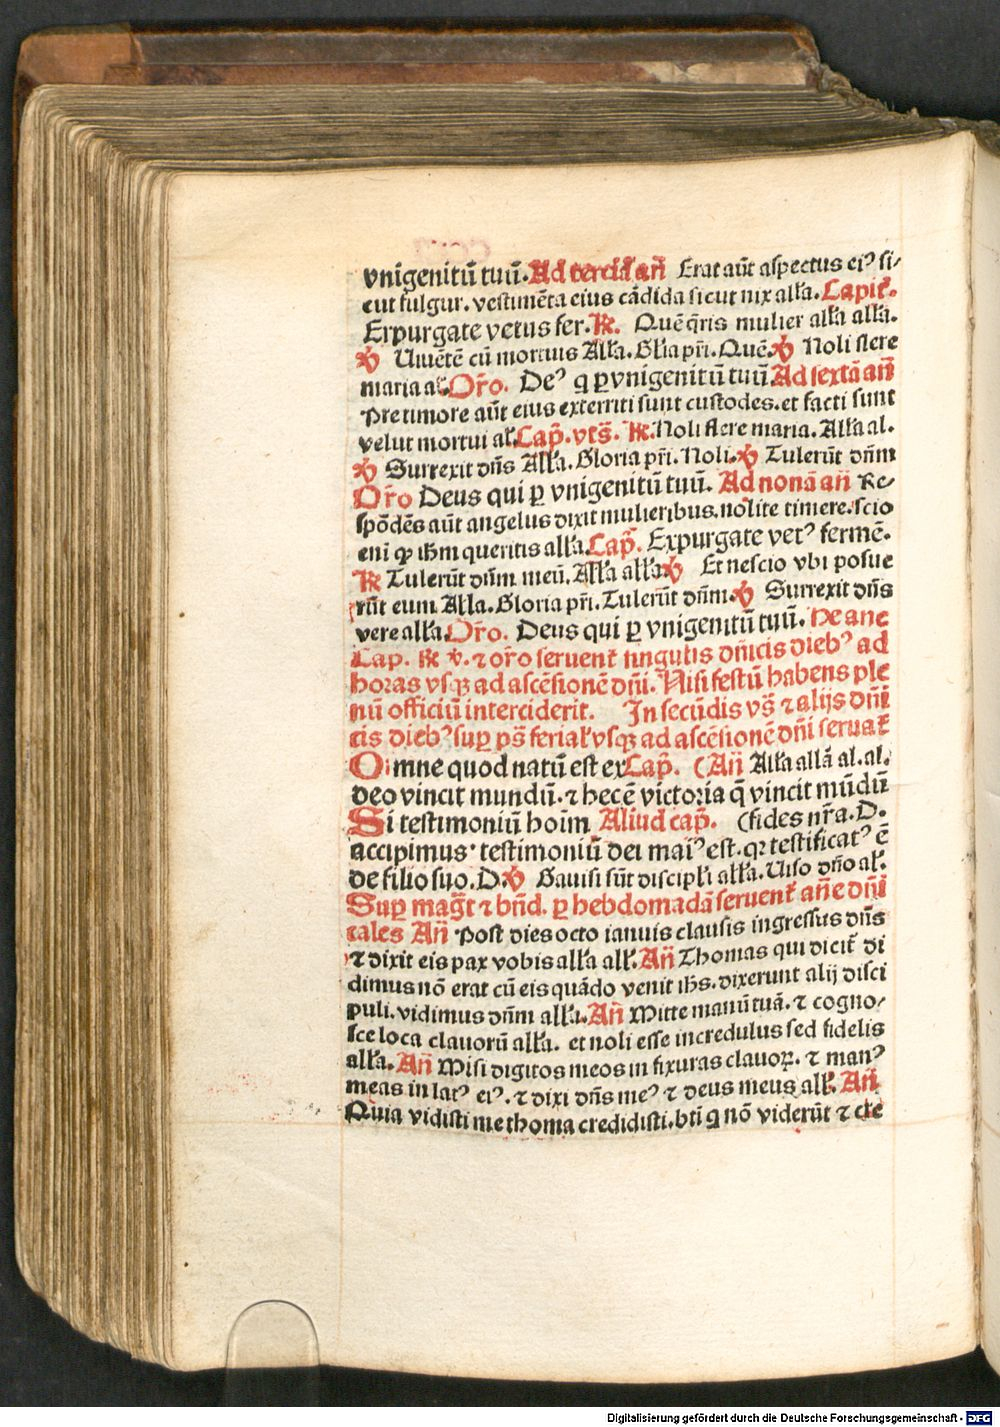 vnigenitū tuū. Ad terciā añ Erat aūt aspectus ei⁹ si/
cut fulgur. vestimēta eius cādida sicut nix alľa. Capiť.
Expurgate vetus fer. ꝶ. Quē q̄ris mulier alľa alľa.
℣ Uiuētē cū mortuis Alľa. Gľia pr̄i. Quē. ℣ Noli flere
maria al'. Or̄o. De⁹ q ꝑ vnigenitū tuū Ad sextā añ
Pre timore aūt eius exterriti sunt custodes. et facti sunt
velut mortui al'. Cap̄. vts̄. ꝶ. Noli flere maria. Alľa al.
℣ Surrexit dn̄s Alľa. Gloria pr̄i. Noli. ℣ Tulerūt dn̄m
Or̄o Deus qui ꝑ vnigenitū tuū. Ad nonā añ Re/
spōdēs aūt angelus dixit mulieribus. nolite timere. scio
eni ꝙ ihm queritis alľa. Cap̄. Expurgate vet⁹ fermē.
ꝶ Tulerūt dn̄m meū. Alľa alľa ℣ Et nescio vbi posue
rūt eum Alľa. Gloria pr̄i. Tulerūt dn̄m. ℣ Surrexit dn̄s
vere alľa. Or̄o. Deus qui ꝑ vnigenitū tuū. He ane
Cap. ꝶ v. ⁊ or̄o seruent̄ singulis dn̄icis dieb⁹ ad
horas vsqꝫ ad ascēsionē dn̄i. Nisi festū habens ple
nū officiū interciderit. In secūdis vs̄ ⁊ alijs dn̄i
cis dieb⁹ suꝑ ps̄ feriaľ vsqꝫ ad ascēsionē dn̄i seruat̄
Omne quod natū est ex Cap̄. (Añ Alľa allā al. al.
deo vincit mundū. ⁊ hec ē victoria q̄ vincit mūdū
Si testimoniū hoīm Aliud cap̄. (fides nr̄a. D.
accipimus. testimoniū dei mai⁹ est. qꝛ testificat⁹ ē
de filio suo. D. ℣ Gauisi sūt discipľi alľa. Uiso dn̄o al'.
Suꝑ maḡt ⁊ bn̄d. ꝑ hebdomadā seruent̄ añe dn̄i
cales Añ Post dies octo ianuis clausis ingressus dn̄s
⁊ dixit eis pax vobis alľa alľ. Añ Thomas qui dicit̄ di
dimus nō erat cū eis quādo venit ihs. dixerunt alij disci
puli. vidimus dn̄m alľa. Añ Mitte manū tuā. ⁊ cogno/
sce loca clauorū alľa. et noli esse incredulus sed fidelis
alľa. Añ Misi digitos meos in fixuras clauoꝝ. ⁊ man⁹
meas in lat⁹ ei⁹. ⁊ dixi dn̄s me⁹ ⁊ deus meus alľ. Añ
Quia vidisti me thoma credidisti. bti q nō viderūt ⁊ cre
Digitalisierung gefördert durch die Deutsche Forschungsgemeinschaft - DFG